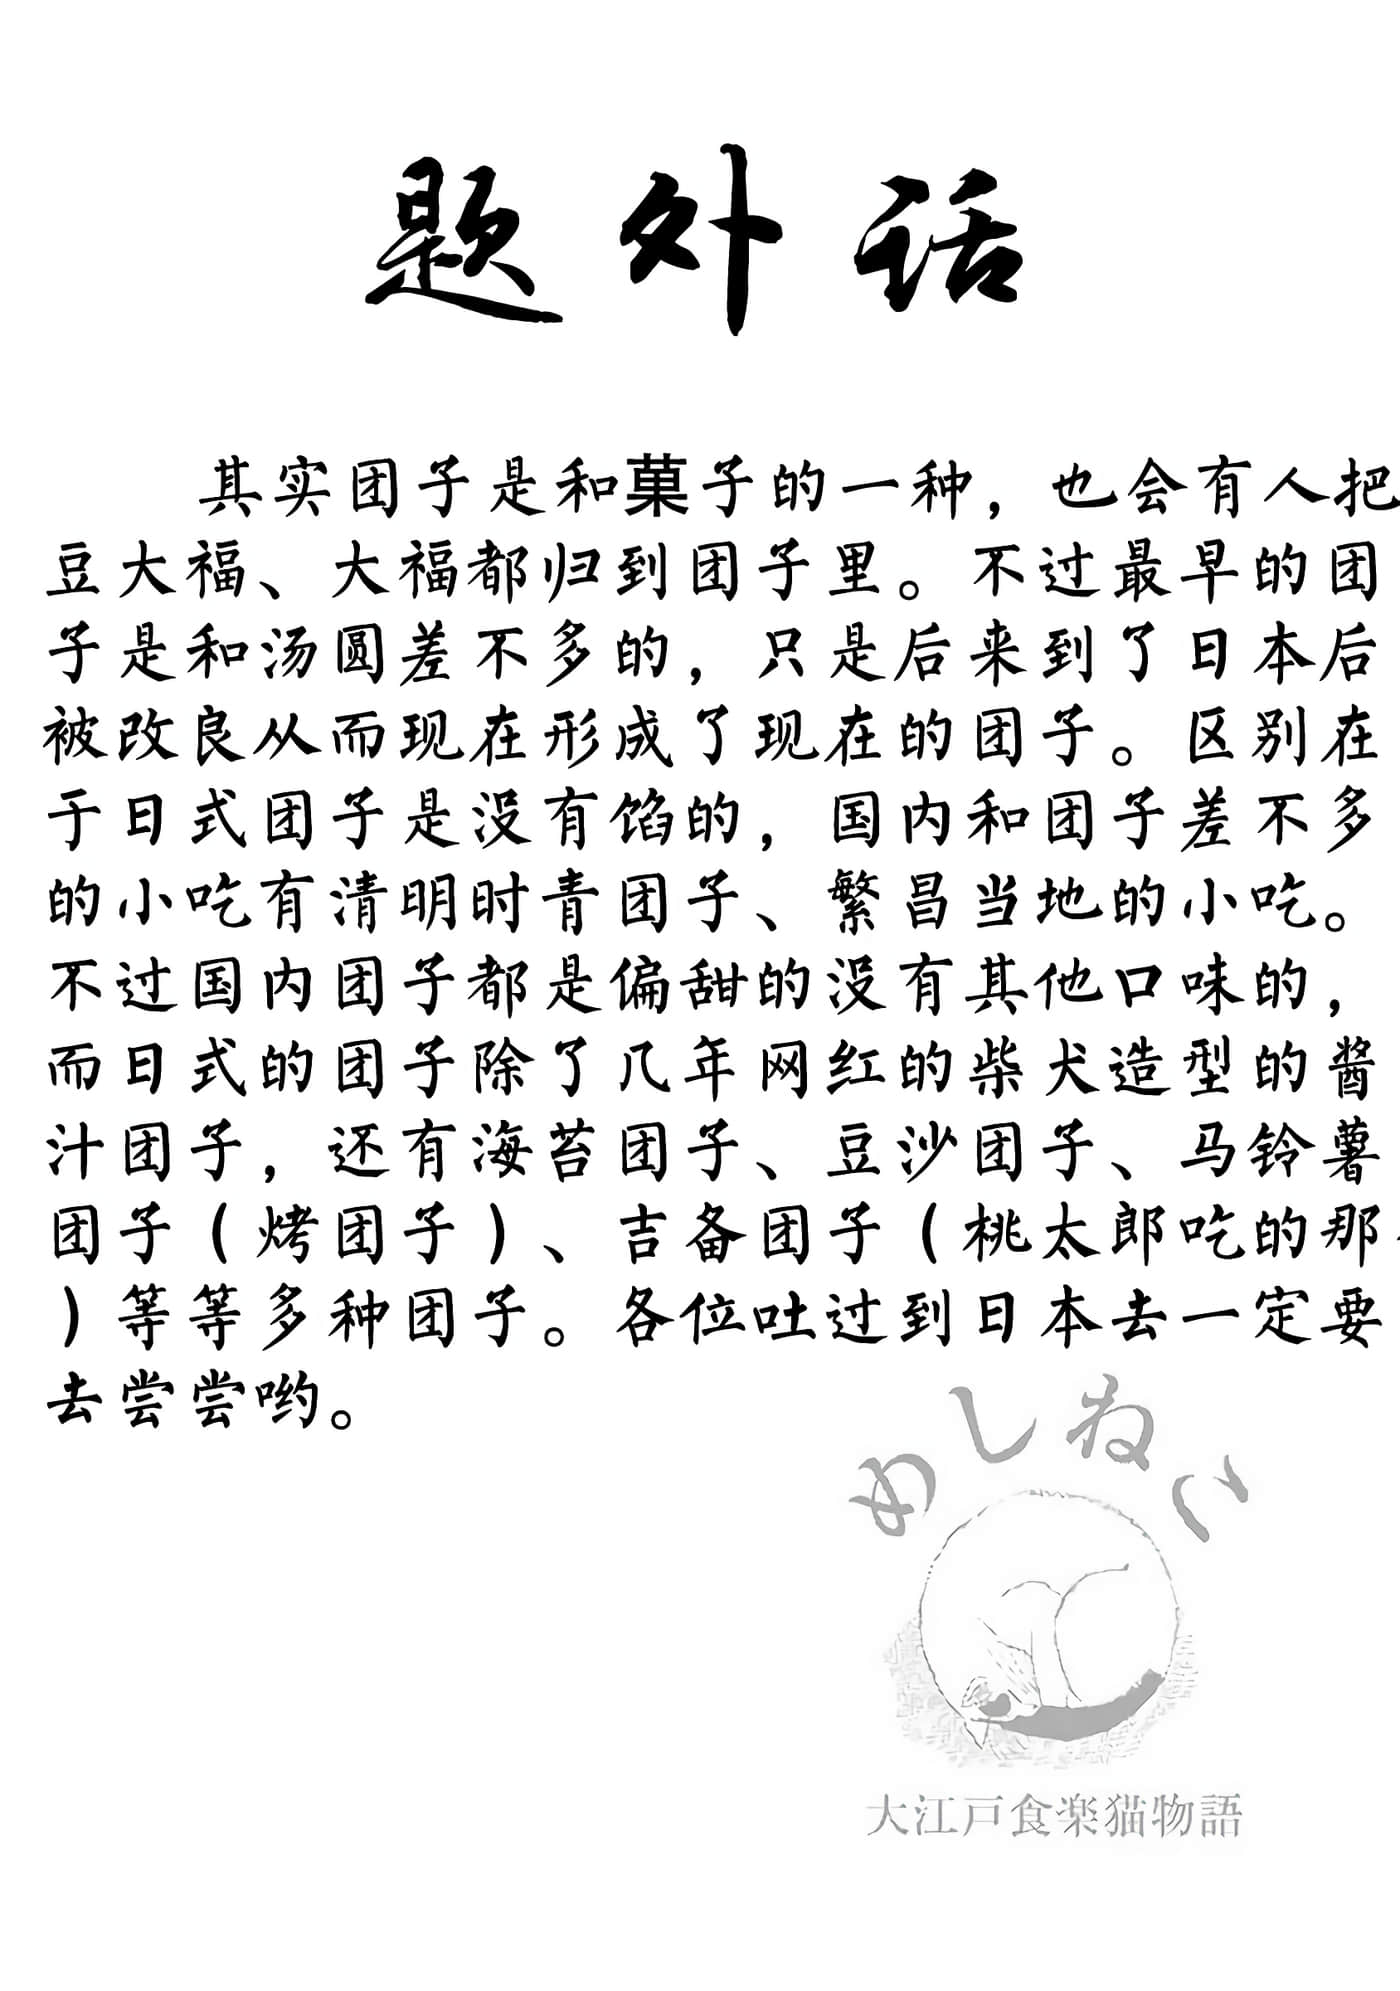 题外话
其实团子是和菓子的一种，也会有人把
豆大福、大福都归到团子里。不过最早的团
子是和汤圆差不多的，只是后来到了日本后
被改良从而现在形成了现在的团子。区别在
于日式团子是没有馅的，国内和团子差不多
的小吃有清明时青团子、繁昌当地的小吃。
不过国内团子都是偏甜的没有其他口味的，
而日式的团子除了几年网红的柴犬造型的酱
汁团子，还有海苔团子、豆沙团子、马铃薯
团子（烤团子）、吉备团子（桃太郎吃的那
）等等多种团子。各位吐过到日本去一定要
去尝尝哟。
めしねこ
大江戸食楽猫物語